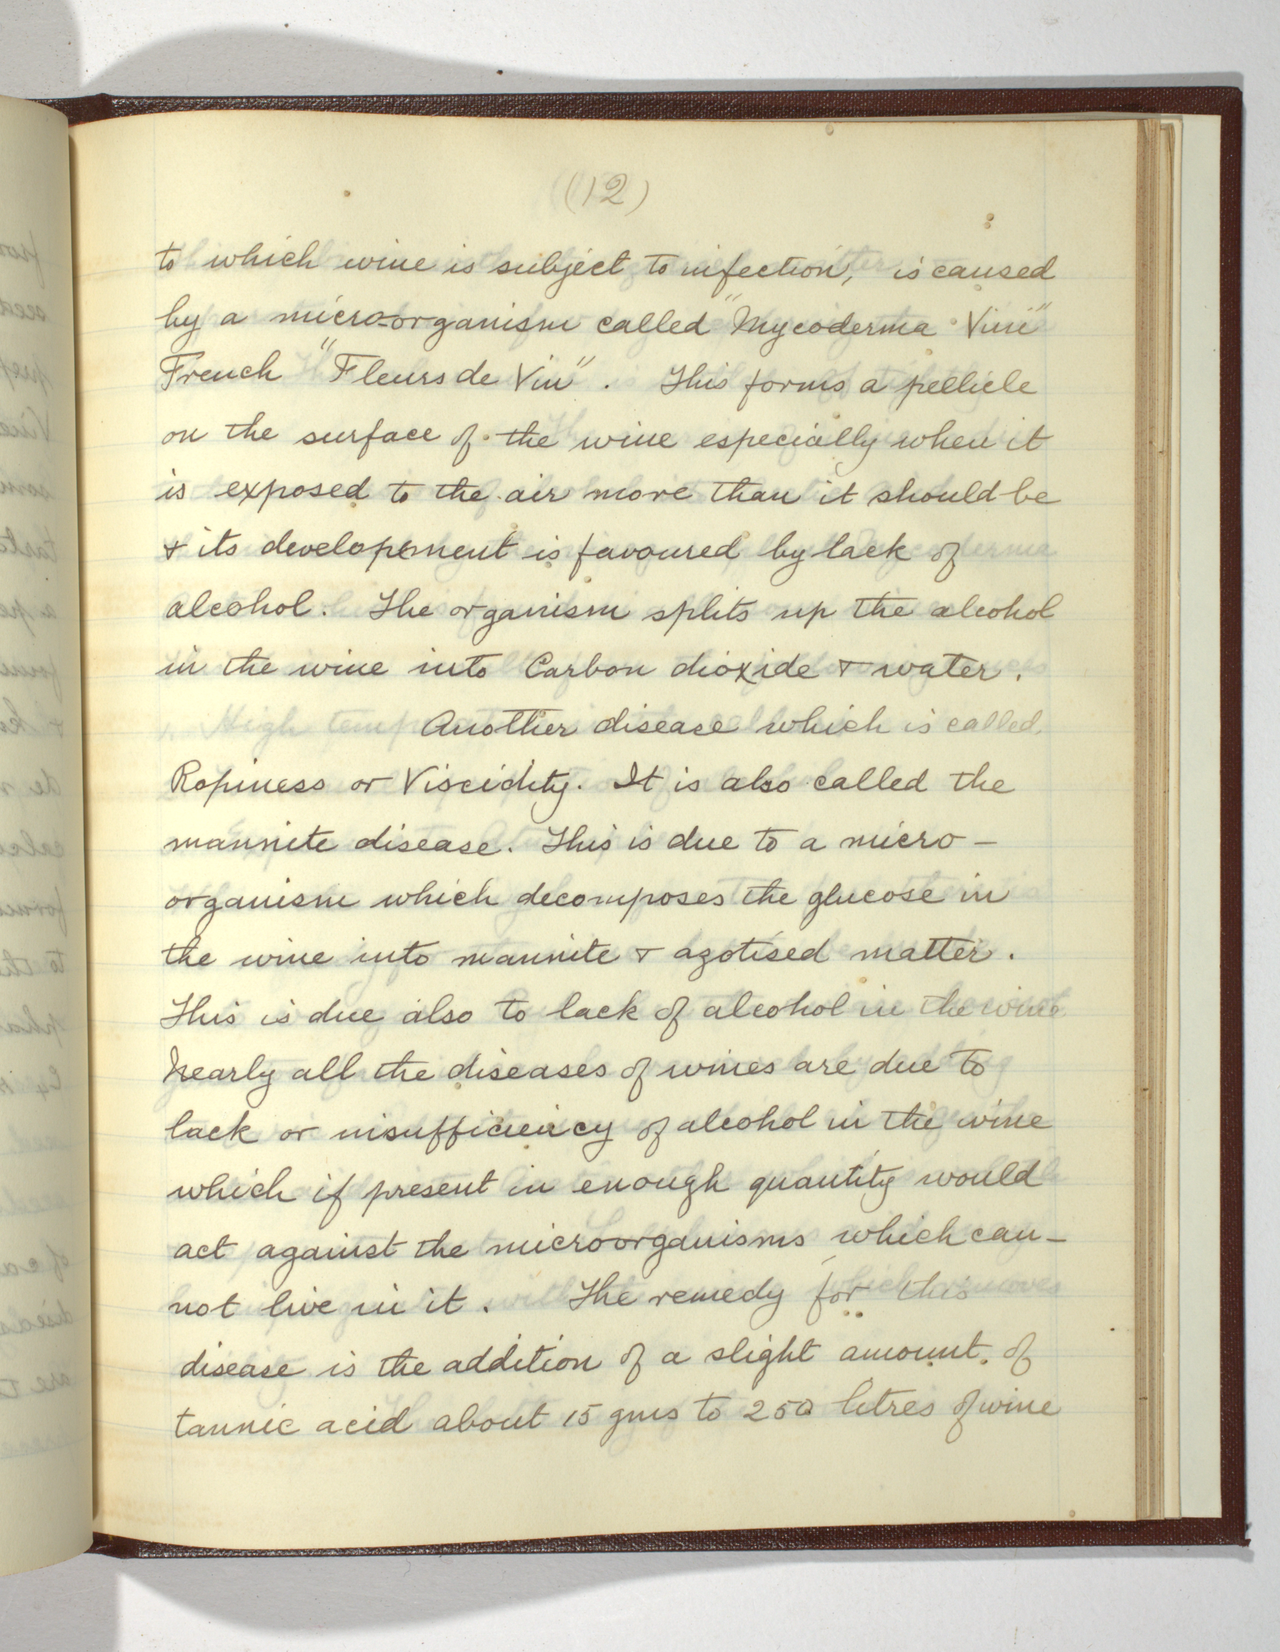 (12)
to which wine is subject to infection, is caused
by a micro-organism called "Mycoderma Vini"
French "Fleurs de Vin". This forms a pellicle
on the surface of the wine especially when it
is exposed to the air more than it should be
& its developement is favoured by lack of
alcohol. The organism splits up the alcohol
in the wine into Carbon dioxide & water.
Another disease which is called
Ropiness or Viscidity. It is also called the
mannite disease. This is due to a micro-
organism which decomposes the glucose in
the wine into mannite & azotised matter.
This is due also to lack of alcohol in the wine
Nearly all the diseases of wines are due to
lack or insufficiency of alcohol in the wine
which if present in enough quantity would
act against the microorganisms which can-
not live in it. The remedy for this
disease is the addition of a slight amount of
tannic acid about 15 gms to 250 litres of wine